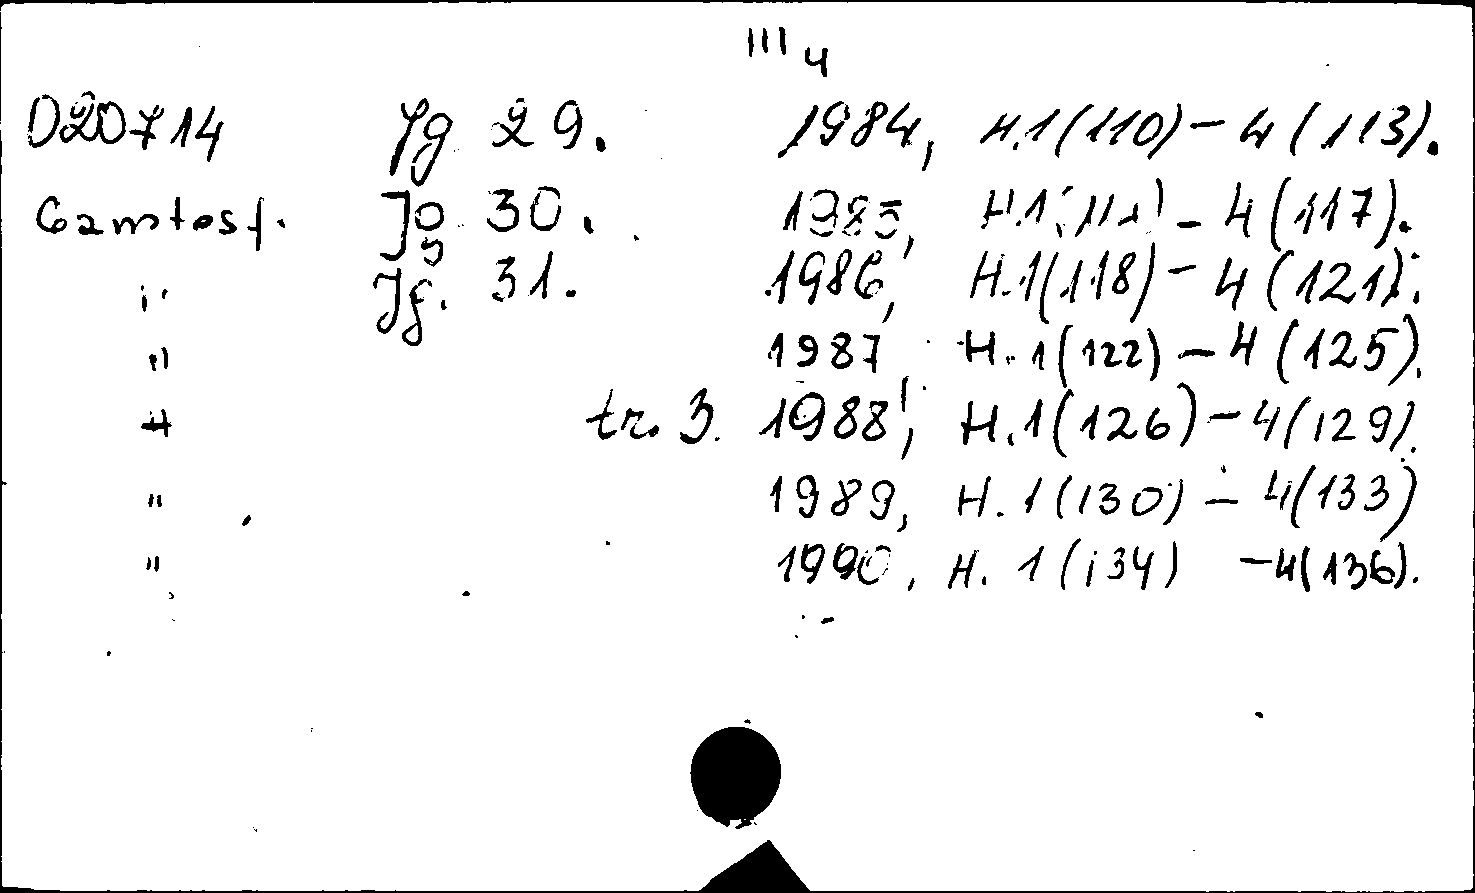 III 4
D20714 Jg 29. 1984, H.1(110) – 4(113).
Jg 30. 1985, H.1 – 4(117).
" Jg. 31. 1986, H.1(118) – 4(121).
" 1987, H.1(122) – 4(125).
" tr. 3. 1988, H.1(126) – 4(129).
" 1989, H.1(130) – 4(133)
" 1990, H. 1(134) – 4(136).